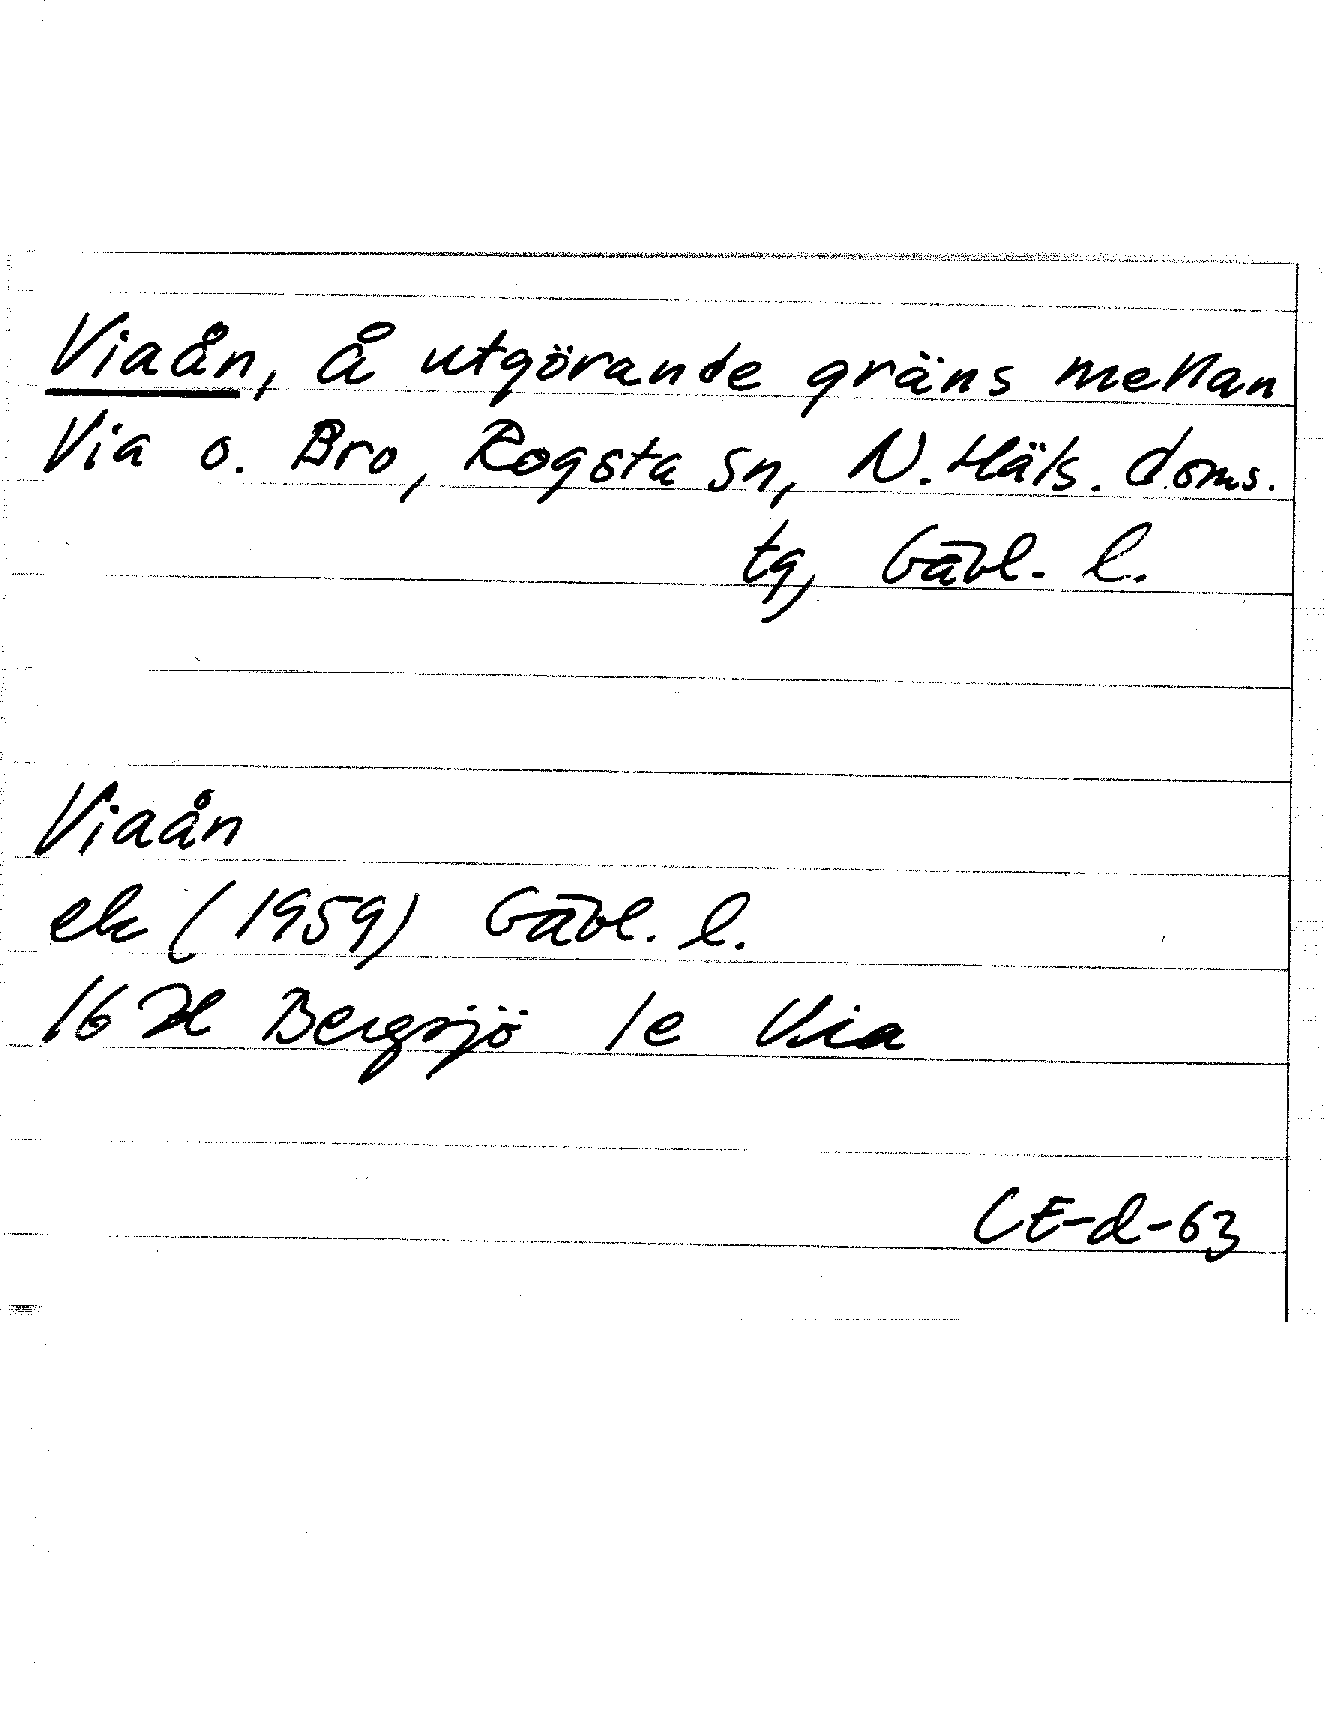 Viaån, å utgörande gräns mellan
Via o. Bro, Rogsta sn, N. Häls. doms.
tg, Gävl. l.
Viaån
ek (1959) Gävl. l.
16 H Bergsjö 1e Via
CE-d-63